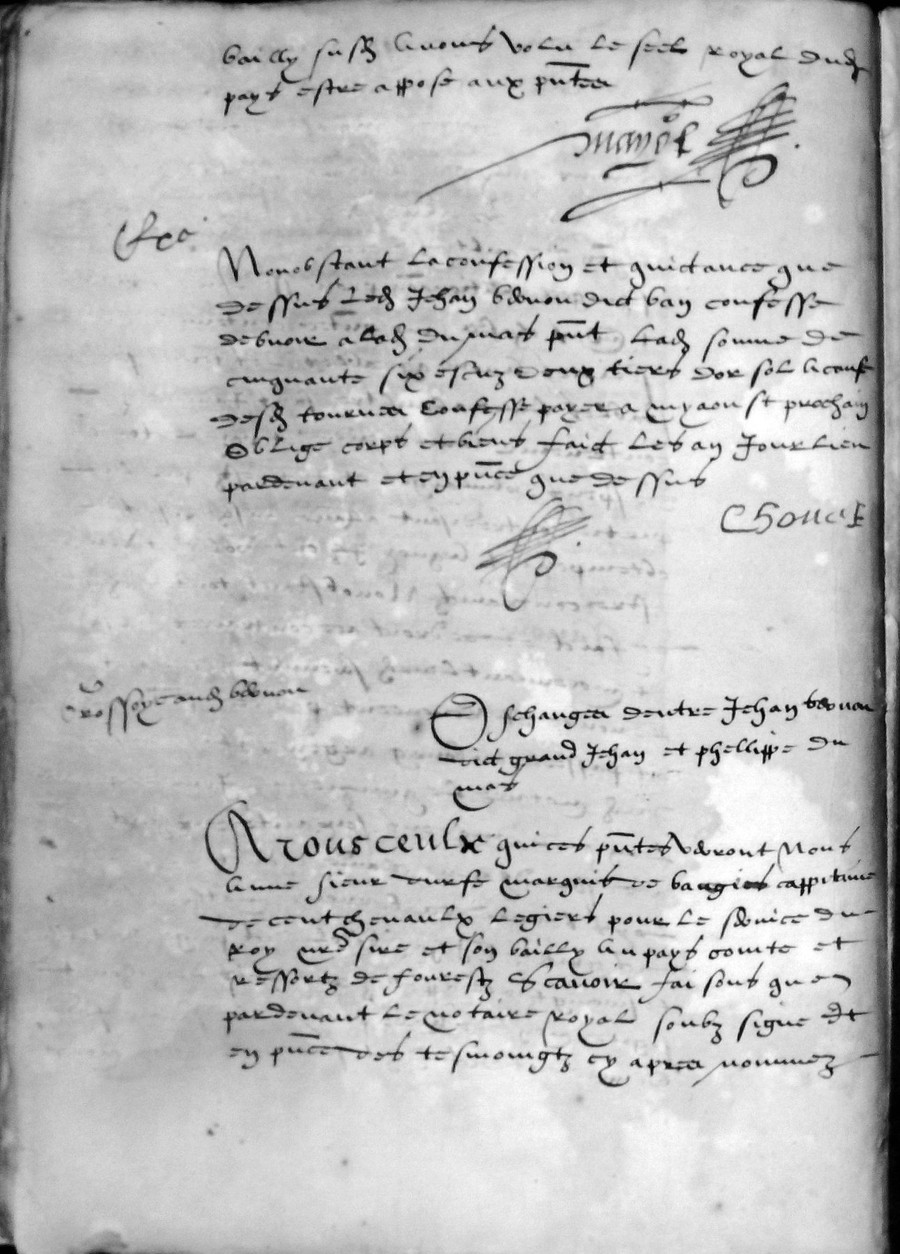 bailly susd avons volu le seel royal dud
pays estre appose aux pntes
mayol
Nonobstant la confession et quictance que
dessus led Jehan dict confesse
debvoir a lad du mas pnt lad somme de
cinquante six escuz deux tiers dor sol
confesse payer a my aoust prochain
Oblige corps et biens faict les an Jour lieu
pardevant et en pnce que dessus
Grossoye aud
Eschanges dentre Jehan
dict grand Jehan et phellippe du
mas
A tous ceulx qui ces pntes verront Nous
Anne sieur durfe marquis de baugies cappitaine
de cent chevaulx legiers pour le service du
Roy nre sire et son bailly au pays comte et
ressortz de fourestz Scavoir faisons que
pardevant le notaire royal soubz signe Et
en pnce des tesmoingtz cy apres nommez